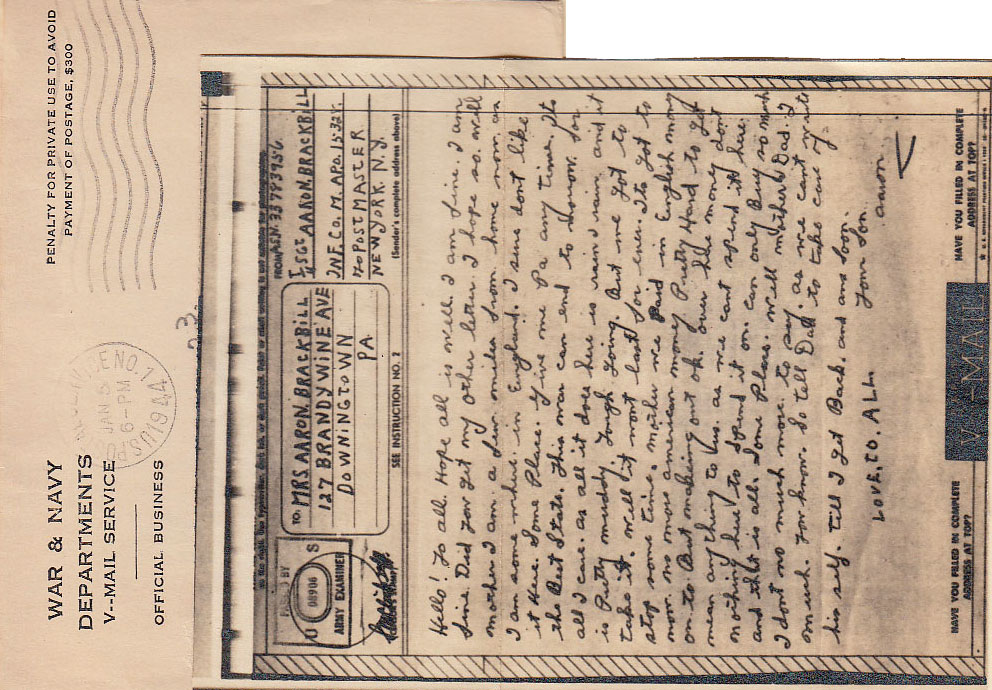 WAR & NAVY
DEPARTMENTS
V--MAIL SERVICE
OFFICIAL BUSINESS
PENALTY FOR PRIVATE USE TO AVOID
PAYMENT OF POSTAGE, $300
ENO. 1
JAN 8
6-PM
1944
PASSED BY
U S
08906
ARMY EXAMINER
TO MRS AARON. BRACKBILL
127 BRANDYWINE AVE
DOWNINGTOWN
PA.
SEE INSTRUCTION NO. 2
FROM ASN. 33793956.
SGT AARON. BRACKBILL
INF. Co. M. APO. 15324.
% POSTMASTER
NEW YORK. N.Y.
(Sender's complete address above)
Hello! To all. Hope all is well. I am fine. I am
fine. Did you get my other letter. I hope so. well
mother I am. a few miles from. home now. as
I am somewhere. in England. I sure dont like
it Here. Some Place. give me Pa any time. Its
the Best State. This war can end to morow. for
all I care. as all it does here is rain. rain. and it
is Pretty muddy. Tough Going. But we got to
take it. well it wont last for ever. Its got to
stop some time. mother we Paid in English money
now. no more american money. Pretty Hard to get
on to But making out ok. over the money dont
mean any thing to us. as we cant spend it here.
nothing here to spend it on. can only Buy so much
and this is all. Some Place. well mother & Dad. I
dont no much more. to say. as we cant write
much. you know. So tell Dad. to take care of
his self. till I get Back. and soon.
Your Son. aaron
LOVE. TO. ALL.
HAVE YOU FILLED IN COMPLETE
ADDRESS AT TOP?
V-MAIL
HAVE YOU FILLED IN COMPLETE
ADDRESS AT TOP?